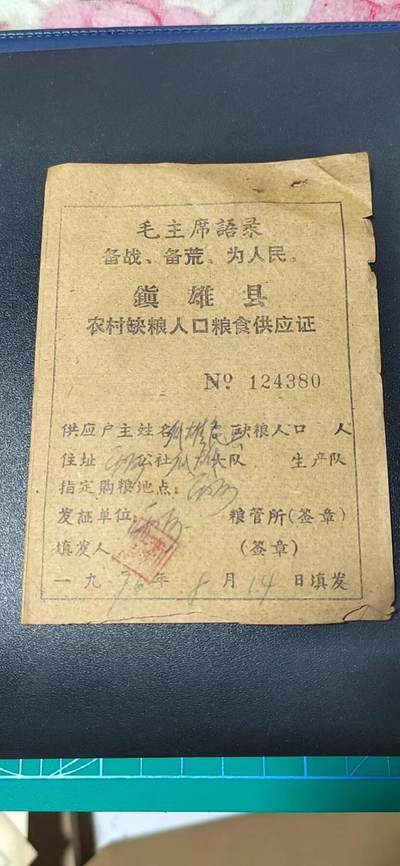 毛主席語录
备战、备荒、为人民。
鎭雄县
农村缺粮人口粮食供应证
№ 124380
供应户主姓名 缺粮人口 人
住址 公社 大队 生产队
指定购粮地点：
发证单位 粮管所(签章)
填发人 (签章)
一九76年8月14日填发